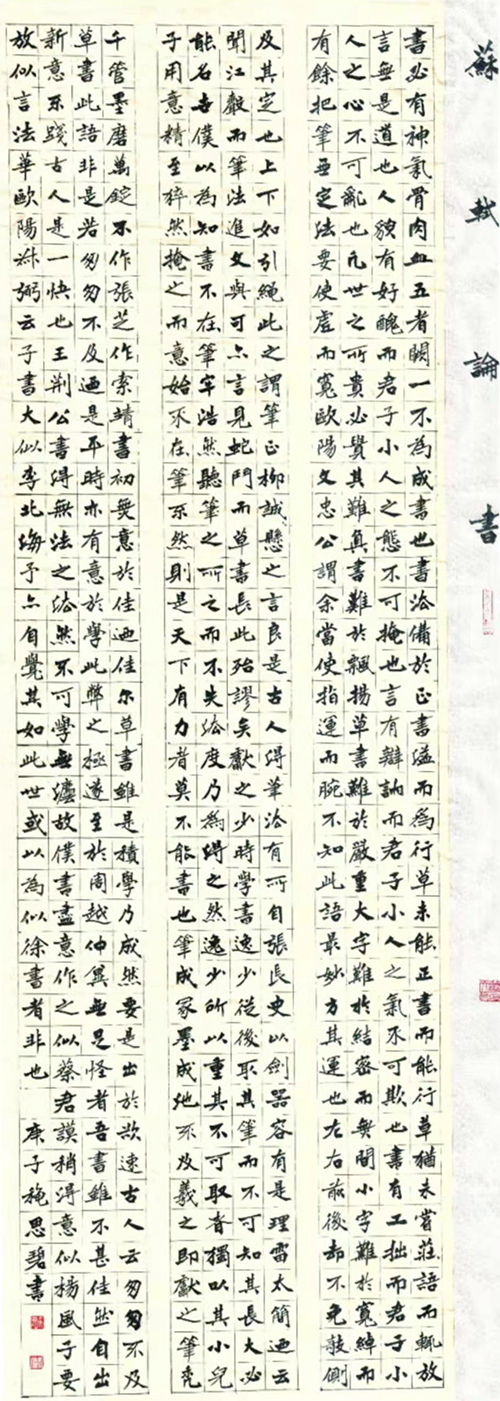 蘇軾論書
書必有神氣骨肉血五者闕一不為成書也書法備於正書溢而為行草未能正書而能行草猶未嘗莊語而輒放
言無是道也人貌有好醜而君子小人之態不可掩也言有辯訥而君子小人之氣不可欺也書有工拙而君子小
人之心不可亂也凡世之所貴必貴其難真書難於飄揚草書難於嚴重大字難於結密而無間小字難於寬綽而
有餘把筆無定法要使虛而寬歐陽文忠公謂余當使指運而腕不知此語最妙方其運也左右前後却不免敧側
及其定也上下如引繩此之謂筆正柳誠懸之言良是古人得筆法有所自張長史以劍器容有是理雷太簡迺云
聞江聲而筆法進文與可亦言見蛇鬥而草書長此殆謬矣獻之少時學書逸少從後取其筆而不可知其長大必
能名世僕以為知書不在筆牢浩然聽筆之所之而不失法度乃為得之然逸少所以重其不可取者獨以其小兒
子用意精至猝然掩之而意始不在筆不然則是天下有力者莫不能書也筆成冢墨成池不及羲之即獻之筆禿
千管墨磨萬錠不作張芝作索靖書初無意於佳迺佳尔草書雖是積學乃成然要是出於欲速古人云匆匆不及
草書此語非是若匆匆不及迺是平時亦有意於學此弊之極遂至於周越仲翼無足怪者吾書雖不甚佳然自出
新意不踐古人是一快也王荊公書得無法之法然不可學無法故僕書盡意作之似蔡君謨稍得意似楊風子要
放似言法華歐陽叔弼云子書大似李北海予亦自覺其如此世或以為似徐書者非也 庚子施思碧書